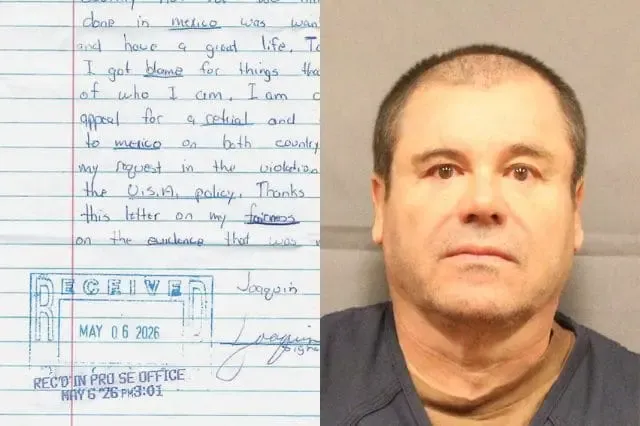 done in mexico was wan
and have a great life. To
I got blame for things tha
of who I am. I am a
appeal for a retrial and
to mexico on both country
my request in the violation
the U.S.A. policy. Thanks
this letter on my fairness
on the evidence that was
Joaquin
RECEIVED
MAY 06 2026
REC'D IN PRO SE OFFICE
MAY 6 '26 PM3:01